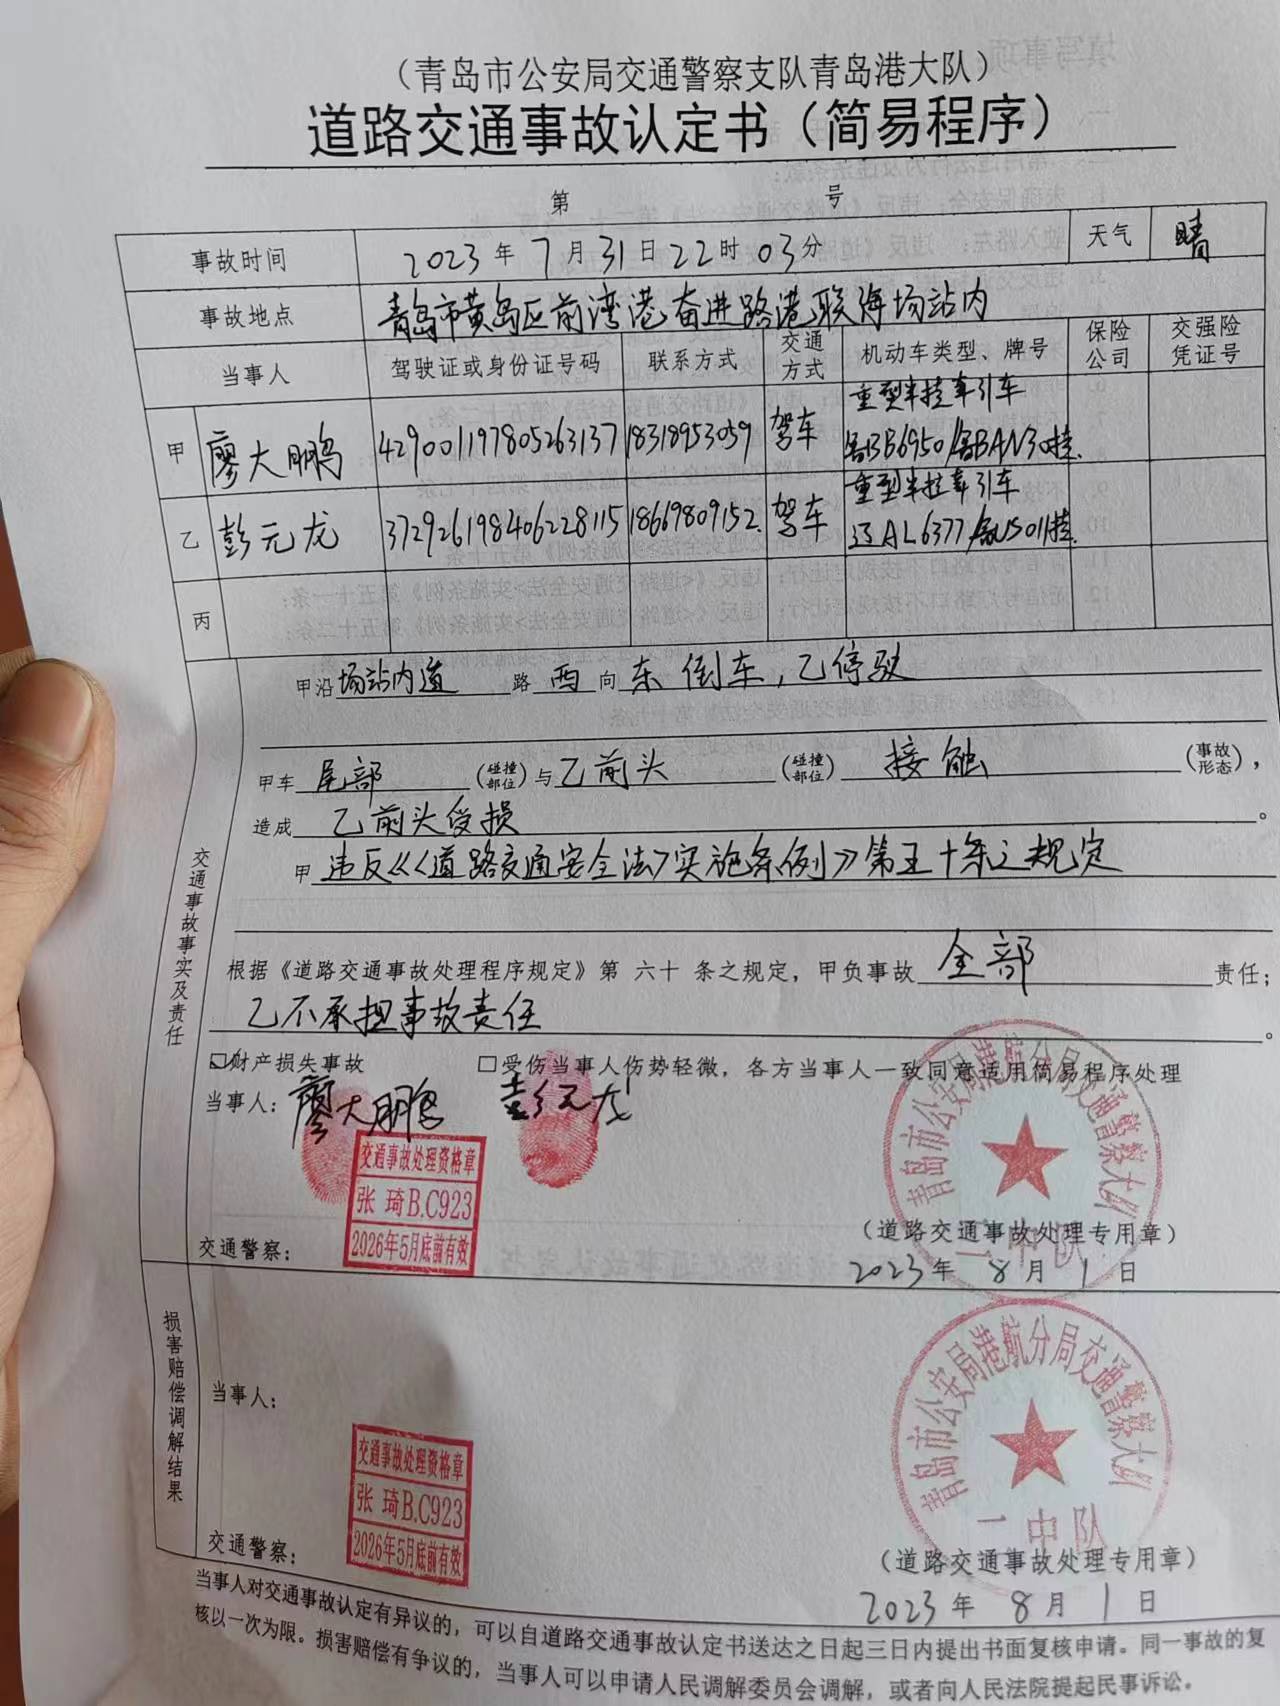 （青岛市公安局交通警察支队青岛港大队）
道路交通事故认定书（简易程序）
第 号
事故时间 2023年7月31日22时03分 天气 晴
事故地点 青岛市黄岛区前湾港奋进路港联海场站内
当事人 驾驶证或身份证号码 联系方式 交通方式 机动车类型、牌号 保险公司 交强险凭证号
甲 廖大鹏 429001197805263137 18318953059 驾车 重型半挂牵引车
B6950/ BAN30挂
乙 彭元龙 372926198406228115 18669809152 驾车 重型半挂牵引车
辽AL6377/ U5011挂
丙
交通事故事实及责任
甲沿场站内道路西向东倒车，乙停驶
甲车尾部（碰撞部位）与乙前头（碰撞部位）接触（事故形态），
造成乙前头受损。
甲违反《〈道路交通安全法〉实施条例》第五十条之规定
根据《道路交通事故处理程序规定》第 六十 条之规定，甲负事故全部责任；
乙不承担事故责任。
☑财产损失事故 □受伤当事人伤势轻微，各方当事人一致同意适用简易程序处理
当事人：廖大鹏 彭元龙
交通事故处理资格章
张 琦B.C923
2026年5月底前有效
交通警察：
青岛市公安局港航分局交通警察大队
二中队
（道路交通事故处理专用章）
2023年8月1日
损害赔偿调解结果
当事人：
交通事故处理资格章
张 琦B.C923
2026年5月底前有效
交通警察：
青岛市公安局港航分局交通警察大队
二中队
（道路交通事故处理专用章）
2023年8月1日
当事人对交通事故认定有异议的，可以自道路交通事故认定书送达之日起三日内提出书面复核申请。同一事故的复
核以一次为限。损害赔偿有争议的，当事人可以申请人民调解委员会调解，或者向人民法院提起民事诉讼。